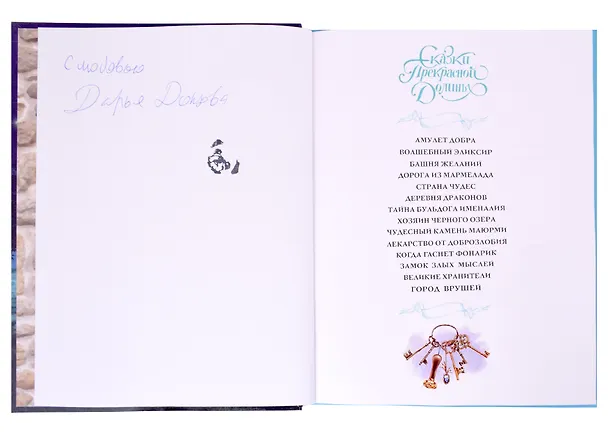 С любовью
Дарья Донцова
Сказки
Прекрасной
Долины
АМУЛЕТ ДОБРА
ВОЛШЕБНЫЙ ЭЛИКСИР
БАШНЯ ЖЕЛАНИЙ
ДОРОГА ИЗ МАРМЕЛАДА
СТРАНА ЧУДЕС
ДЕРЕВНЯ ДРАКОНОВ
ТАЙНА БУЛЬДОГА ИМЕНАЛИЯ
ХОЗЯИН ЧЕРНОГО ОЗЕРА
ЧУДЕСНЫЙ КАМЕНЬ МАЮРМИ
ЛЕКАРСТВО ОТ ДОБРОЗЛОБИЯ
КОГДА ГАСНЕТ ФОНАРИК
ЗАМОК ЗЛЫХ МЫСЛЕЙ
ВЕЛИКИЕ ХРАНИТЕЛИ
ГОРОД ВРУШЕЙ